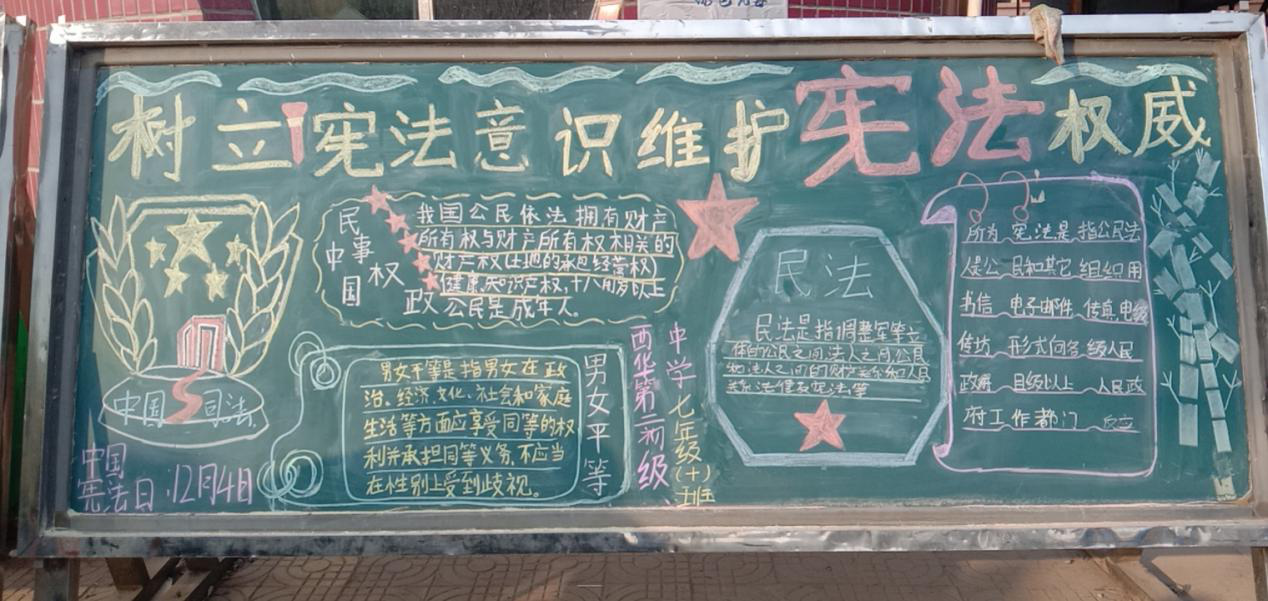 树立宪法意识维护宪法权威
中国司法
中国
宪法日
12月4日
民事权
中国
政
我国公民依法拥有财产
所有权与财产所有权相关的
财产权(土地的承包经营权)
健康,知识产权,十八周岁以上
公民是成年人。
男女平等
男女平等是指男女在政
治、经济、文化、社会和家庭
生活等方面应享受同等的权
利并承担同等义务,不应当
在性别上受到歧视。
西华第二初级
中学七年级(十)班
民法
民法是指调整
体的公民之间法人之间公民
和法人之间的财产关系和人身
关系法律 宪法等
所为 宪法是 指公民法
人 公 民和其它 组织用
书信 电子邮件 传真 电
形式向各 级人民
政府 县级以上 人民政
府工作部门 反应